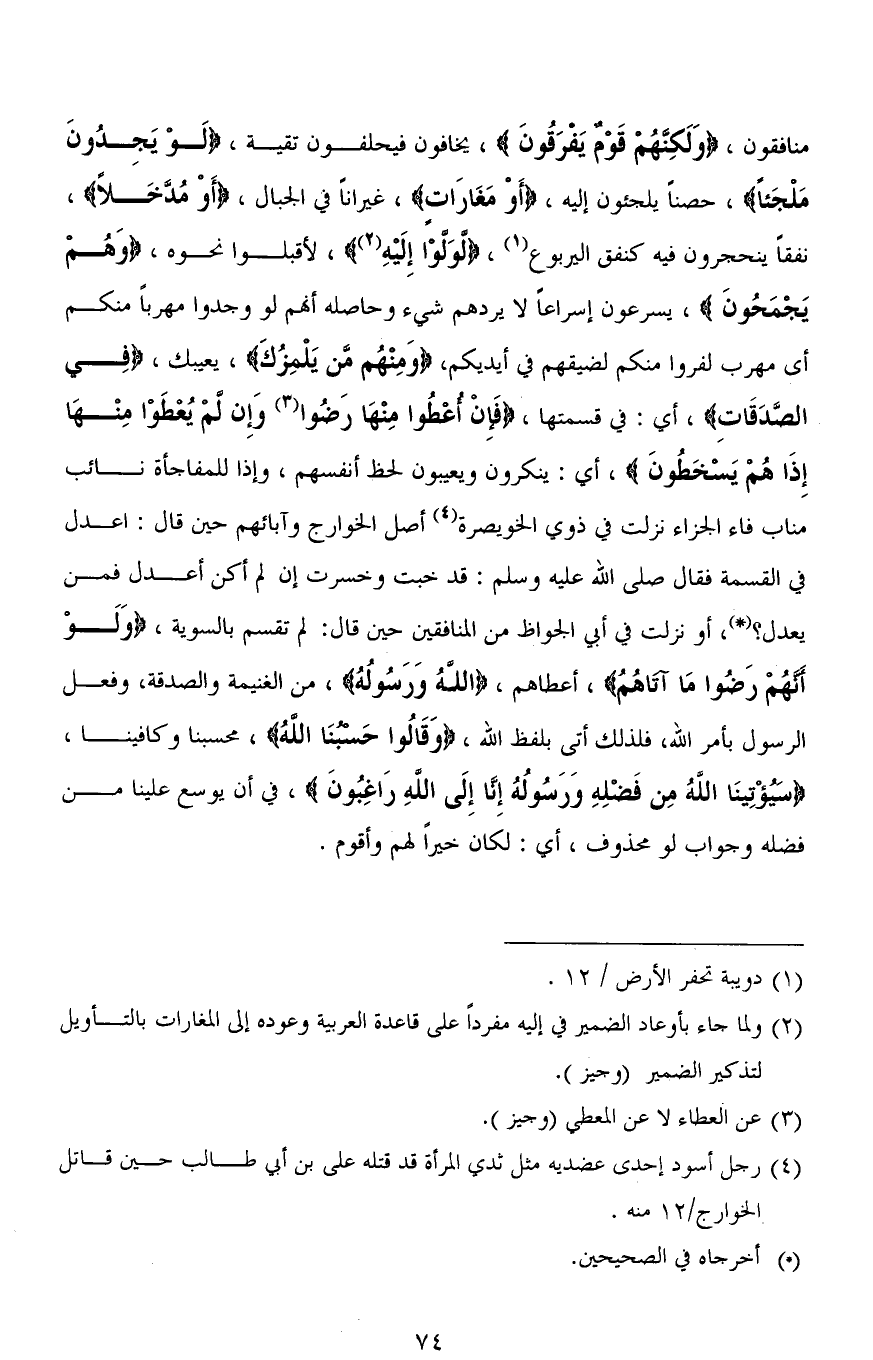 منافقون ، ﴿وَلَكِنَّهُمْ قَوْمٌ يَفْرَقُونَ ﴾ ، يخافون فيحلفون تقية ، ﴿لَوْ يَجِدُونَ
مَلْجَئاً﴾ ، حصناً يلجئون إليه ، ﴿أَوْ مَغَارَاتٍ﴾ ، غيراناً في الجبال ، ﴿أَوْ مُدَّخَلاً﴾ ،
نفقاً ينحجرون فيه كنفق اليربوع(١) ، ﴿لَّوَلَّوْا إِلَيْهِ(٢)﴾ ، لأقبلوا نحوه ، ﴿وَهُمْ
يَجْمَحُونَ ﴾ ، يسرعون إسراعاً لا يردهم شيء وحاصله أنهم لو وجدوا مهرباً منكم
أى مهرب لفروا منكم لضيقهم في أيديكم، ﴿وَمِنْهُم مَّن يَلْمِزُكَ﴾ ، يعيبك ، ﴿فِي
الصَّدَقَاتِ﴾ ، أي : في قسمتها ، ﴿فَإِنْ أُعْطُوا مِنْهَا رَضُوا(٣) وَإِن لَّمْ يُعْطَوْا مِنْهَا
إِذَا هُمْ يَسْخَطُونَ ﴾ ، أي : ينكرون ويعيبون لحظ أنفسهم ، وإذا للمفاجأة نائب
مناب فاء الجزاء نزلت في ذوي الخويصرة(٤) أصل الخوارج وآبائهم حين قال : اعدل
في القسمة فقال صلى الله عليه وسلم : قد خبت وخسرت إن لم أكن أعدل فمن
يعدل؟(*)، أو نزلت في أبي الجواظ من المنافقين حين قال: لم تقسم بالسوية ، ﴿وَلَوْ
أَنَّهُمْ رَضُوا مَا آتَاهُمُ﴾ ، أعطاهم ، ﴿اللَّهُ وَرَسُولُهُ﴾ ، من الغنيمة والصدقة، وفعل
الرسول بأمر الله، فلذلك أتى بلفظ الله ، ﴿وَقَالُوا حَسْبُنَا اللَّهُ﴾ ، محسبنا وكافينا ،
﴿سَيُؤْتِينَا اللَّهُ مِن فَضْلِهِ وَرَسُولُهُ إِنَّا إِلَى اللَّهِ رَاغِبُونَ ﴾ ، في أن يوسع علينا من
فضله وجواب لو محذوف ، أي : لكان خيراً لهم وأقوم .
(١) دويبة تحفر الأرض / ١٢ .
(٢) ولما جاء بأوعاد الضمير في إليه مفرداً على قاعدة العربية وعوده إلى المغارات بالتأويل
لتذكير الضمير (وجيز ).
(٣) عن العطاء لا عن المعطي (وجيز ).
(٤) رجل أسود إحدى عضديه مثل ثدي المرأة قد قتله على بن أبي طالب حين قاتل
الخوارج/١٢ منه .
(*) أخرجاه في الصحيحين.
٧٤